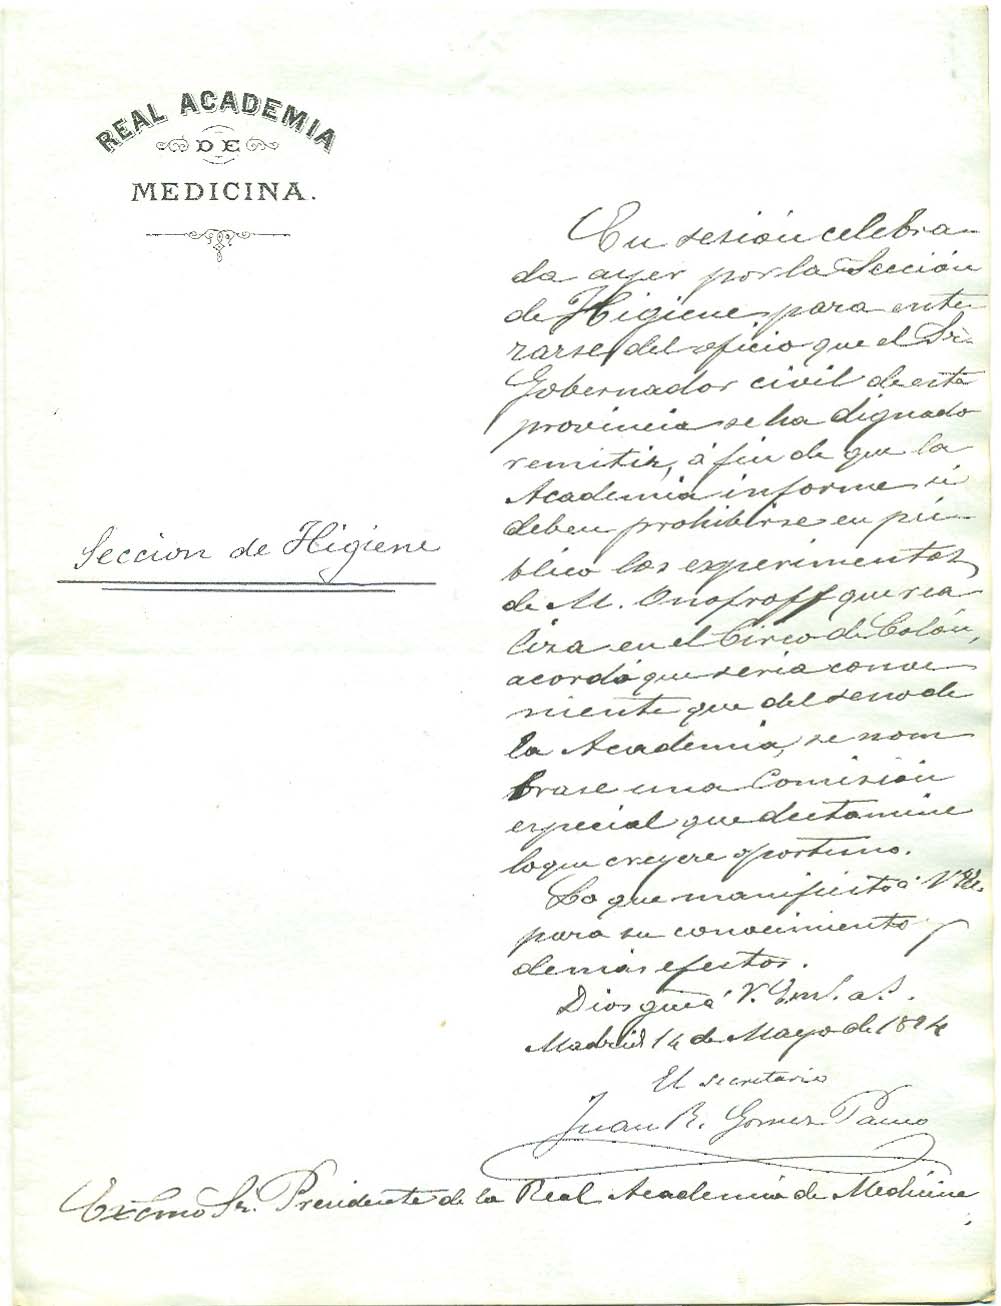 REAL ACADEMIA
DE
MEDICINA.
Seccion de Higiene
En sesión celebra-
da ayer por la Sección
de Higiene para ente-
rarse del oficio que el Sr.
Gobernador civil de esta
provincia se ha dignado
remitir, á fin de que la
Academia informe si
deben prohibirse en pú-
blico los experimentos
de M. Onofroff que rea-
liza en el Circo de Colón,
acordó que seria conve-
niente que del seno de
la Academia, se nom
brase una Comisión
especial que dictamine
lo que creyere oportuno.
Lo que manifiesto á V.E.
para su conocimiento y
demás efectos.
Dios gue á V. Em. a. s.
Madrid 14 de Mayo de 1894
El secretario
Juan R. Gomez Pamo
Excmo Sr. Presidente de la Real Academia de Medicina.